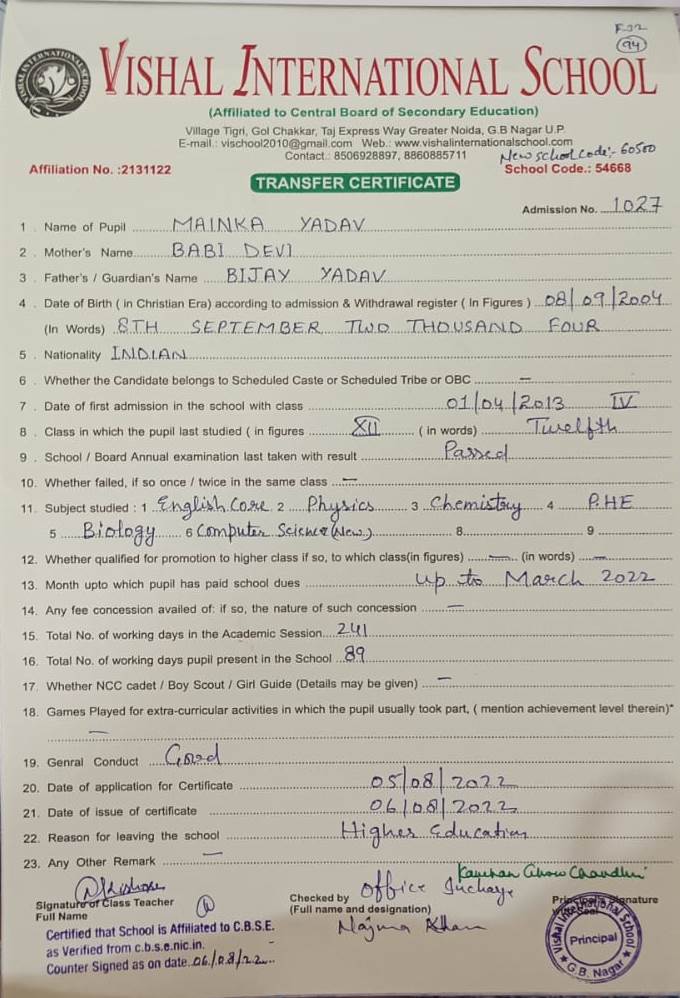 F-32
94
VISHAL INTERNATIONAL SCHOOL
(Affiliated to Central Board of Secondary Education)
Village Tigri, Gol Chakkar, Taj Express Way Greater Noida, G.B Nagar U.P.
E-mail.: vischool2010@gmail.com Web.: www.vishalinternationalschool.com
Contact.: 8506928897, 8860885711
New school code:- 60500
Affiliation No. :2131122
School Code.: 54668
TRANSFER CERTIFICATE
Admission No. 1027
1 . Name of Pupil MAINKA YADAV
2 . Mother's Name BABI DEVI
3 . Father's / Guardian's Name BIJAY YADAV
4 . Date of Birth ( in Christian Era) according to admission & Withdrawal register ( In Figures ) 08/09/2004
(In Words) 8TH SEPTEMBER TWO THOUSAND FOUR
5 . Nationality INDIAN
6 . Whether the Candidate belongs to Scheduled Caste or Scheduled Tribe or OBC —
7 . Date of first admission in the school with class 01/04/2013 IV
8 . Class in which the pupil last studied ( in figures XII ( in words) Twelfth
9 . School / Board Annual examination last taken with result Passed
10. Whether failed, if so once / twice in the same class —
11. Subject studied : 1 English Core 2 Physics 3 Chemistry 4 P.HE
5 Biology 6 Computer Science (New) 8 9
12. Whether qualified for promotion to higher class if so, to which class(in figures) — (in words) —
13. Month upto which pupil has paid school dues up to March 2022
14. Any fee concession availed of: if so, the nature of such concession —
15. Total No. of working days in the Academic Session 241
16. Total No. of working days pupil present in the School 89
17. Whether NCC cadet / Boy Scout / Girl Guide (Details may be given) —
18. Games Played for extra-curricular activities in which the pupil usually took part, ( mention achievement level therein)*
—
19. Genral Conduct Good
20. Date of application for Certificate 05/08/2022
21. Date of issue of certificate 06/08/2022
22. Reason for leaving the school Higher Education
23. Any Other Remark —
Signature of Class Teacher
Full Name
Checked by Office Incharge
(Full name and designation)
Najma Khan
Principal's Signature
Certified that School is Affiliated to C.B.S.E.
as Verified from c.b.s.e.nic.in.
Counter Signed as on date 06/08/22
Vishal International School
Principal
G.B. Nagar